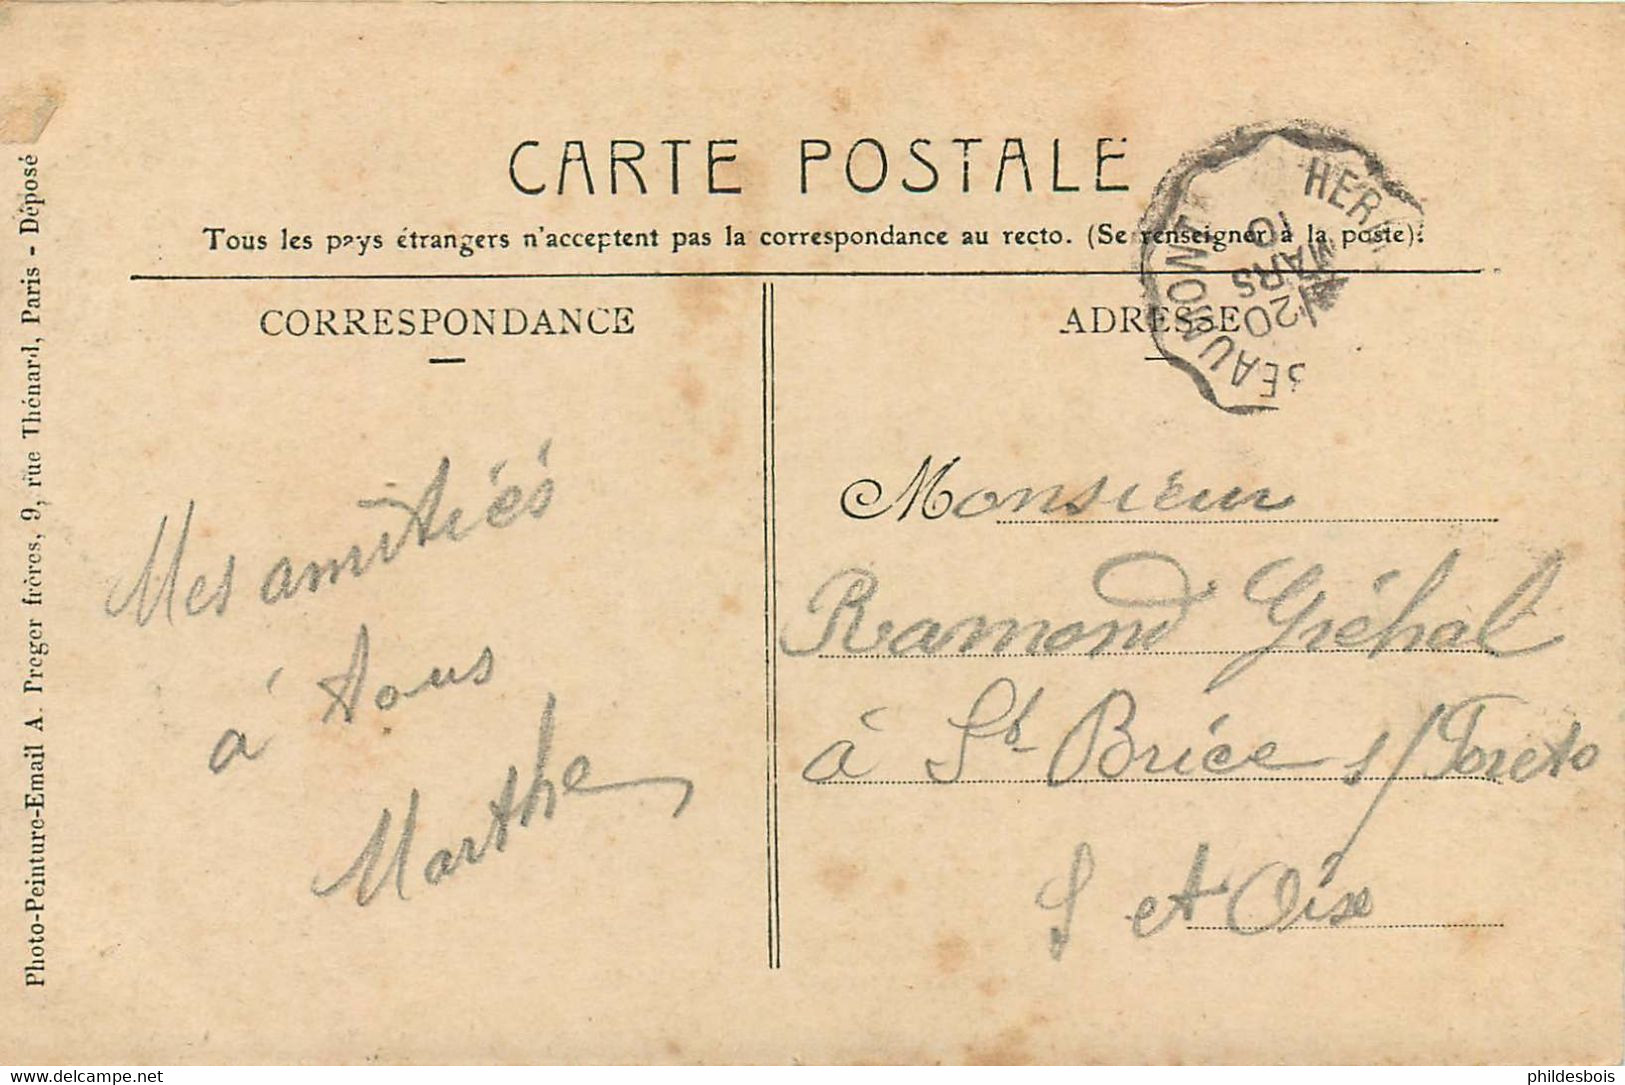 CARTE POSTALE
Tous les pays étrangers n'acceptent pas la correspondance au recto. (Se renseigner à la poste).
CORRESPONDANCE
ADRESSE
Mes amitiés
à tous
Marthe
Monsieur
Ramond Gréhal
à St Brice s/Foret
S et Oise
20
MARS
10
Photo-Peinture-Email A. Preger frères, 9, rue Thénard, Paris - Déposé
www.delcampe.net
phildesbois